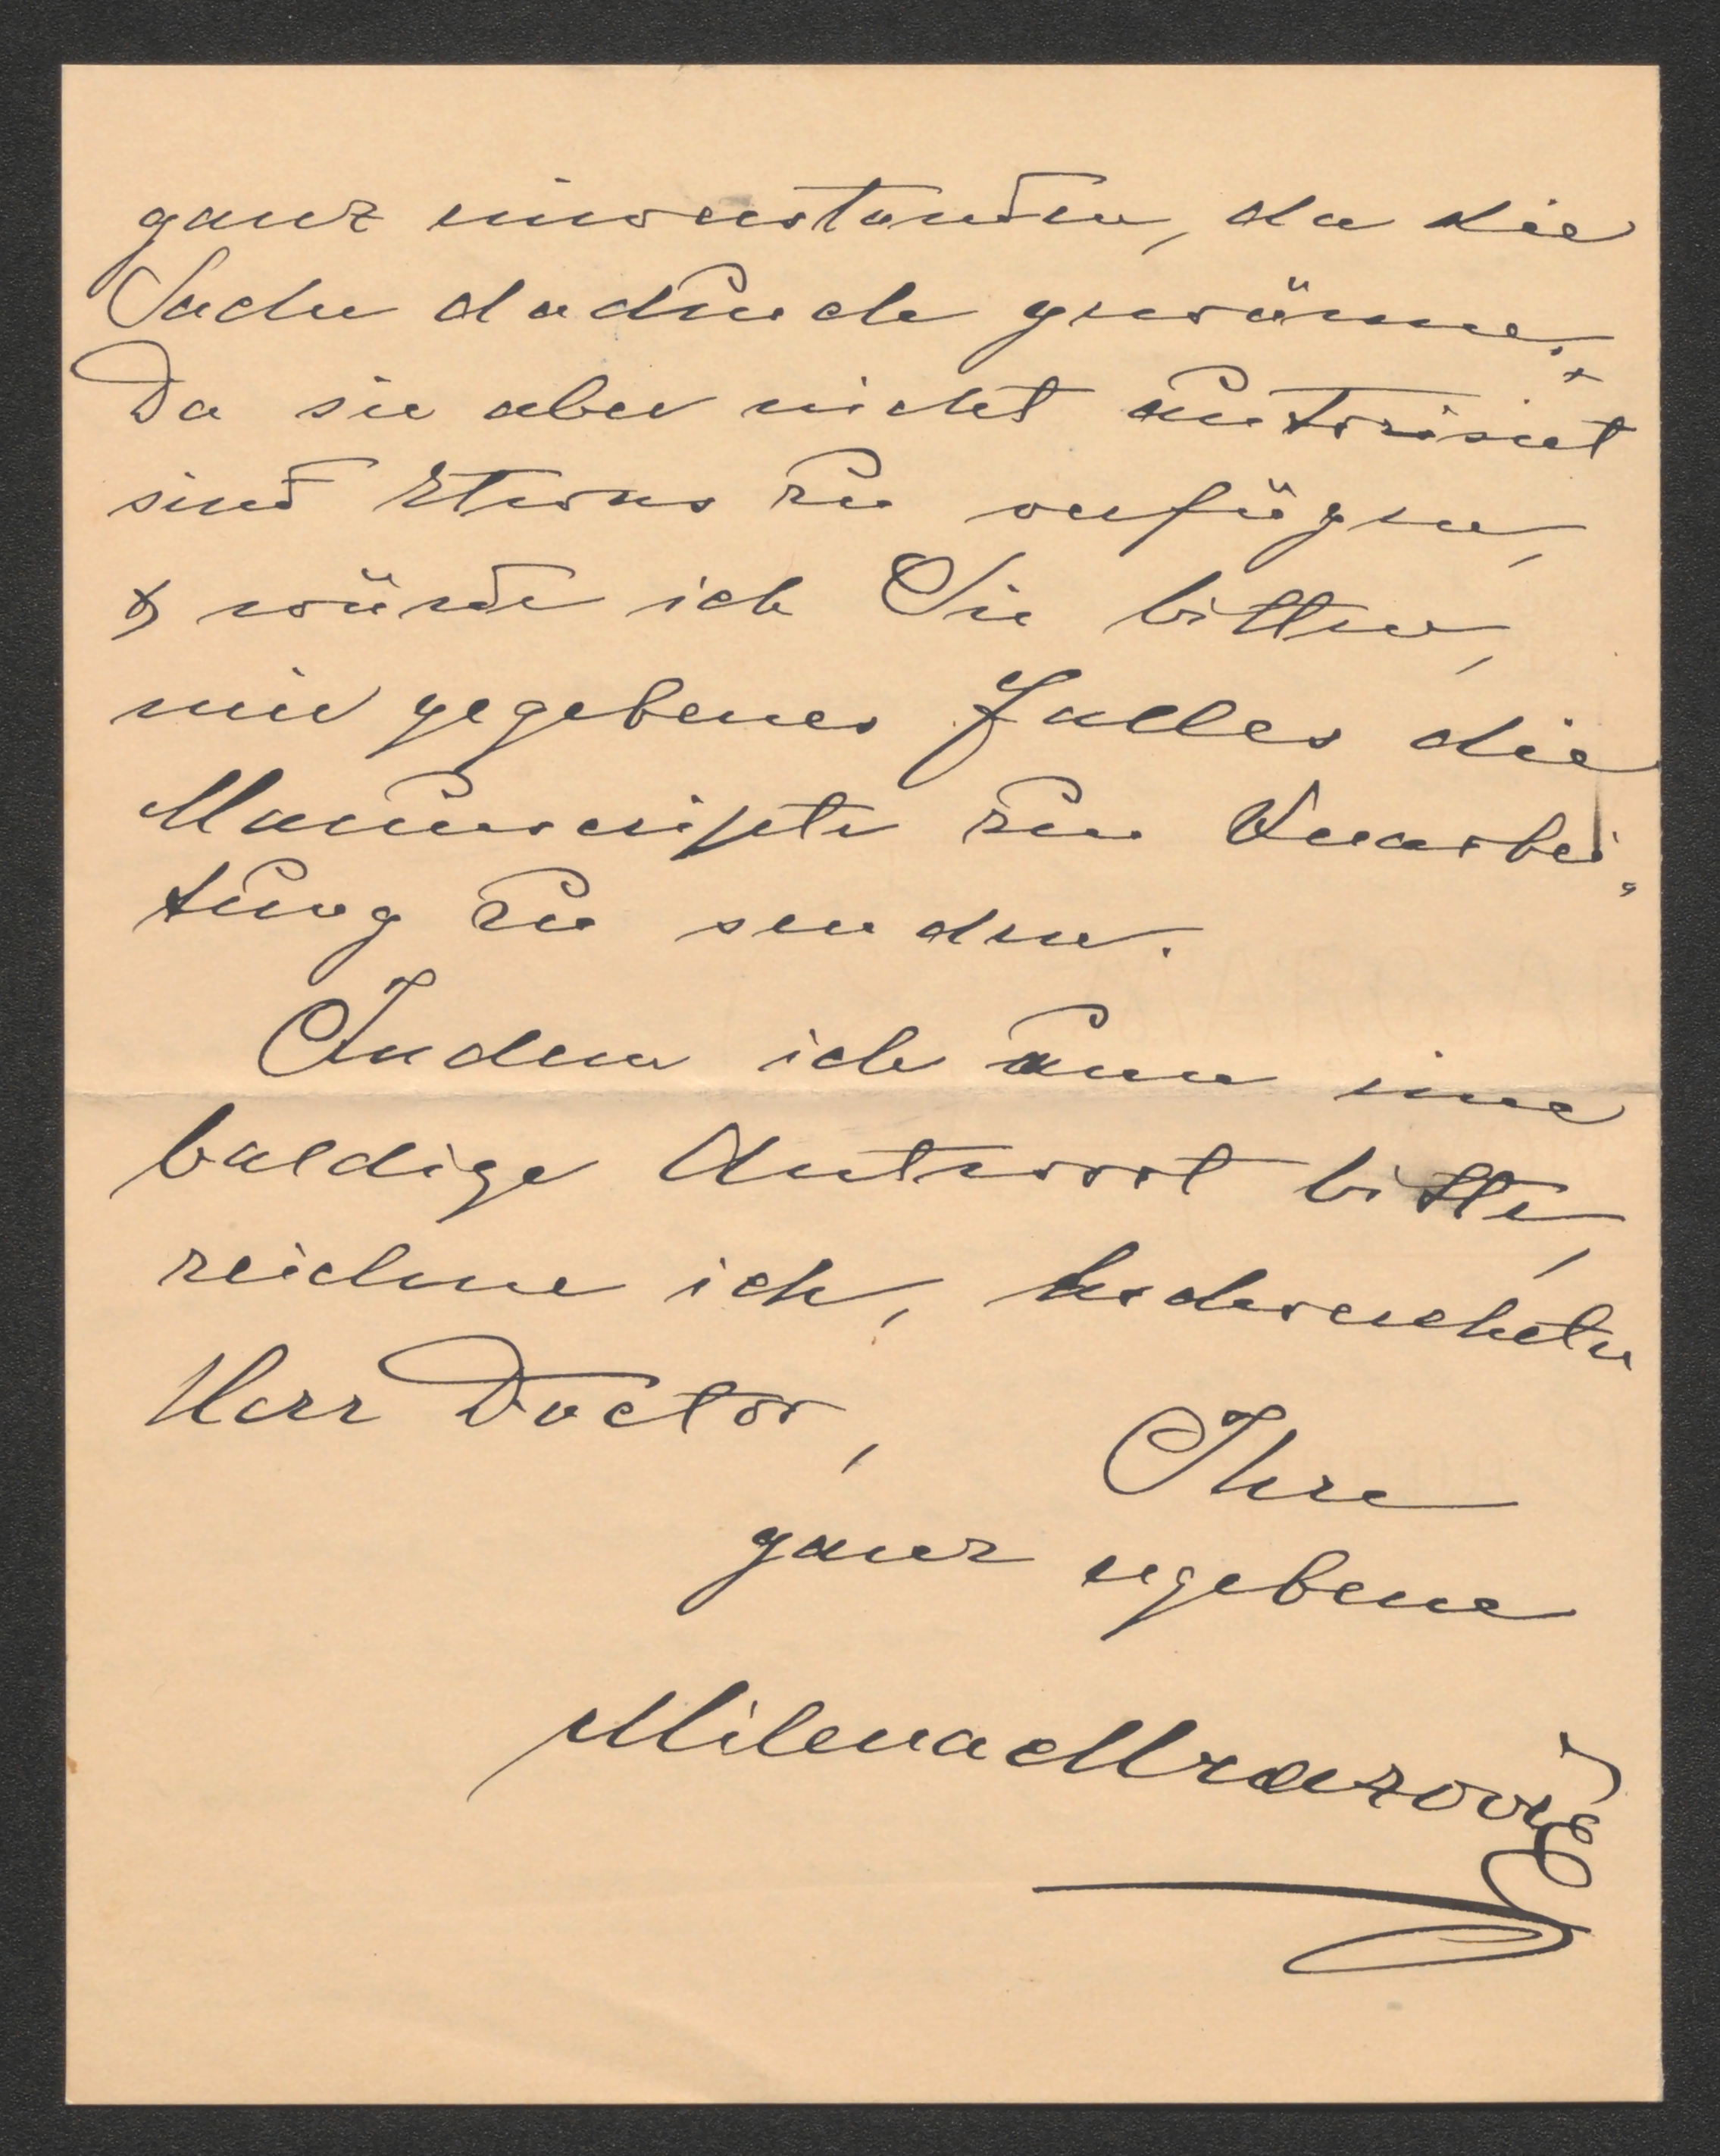 ganz einverstanden, da die
Sache dadurch gewänne.
Da sie aber nicht autorisiert
sind Etwas zu verfügen,
& würde ich Sie bitten,
mir gegebenes Falles die
Manuscripte zur Verarbei-
tung zu senden.
Indem ich um eine
baldige Antwort bitte,
zeichne ich, hochverehrter
Herr Doctor,
Ihre
ganz ergebene
Milena Mrazović